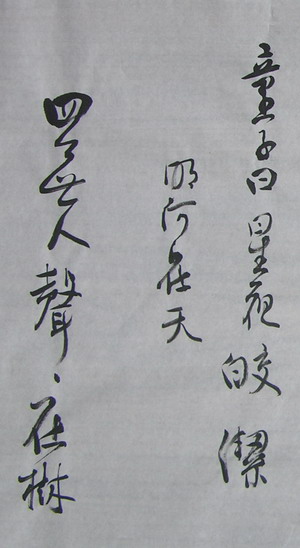 童子曰星夜皎潔
明河在天
四無人聲、在樹